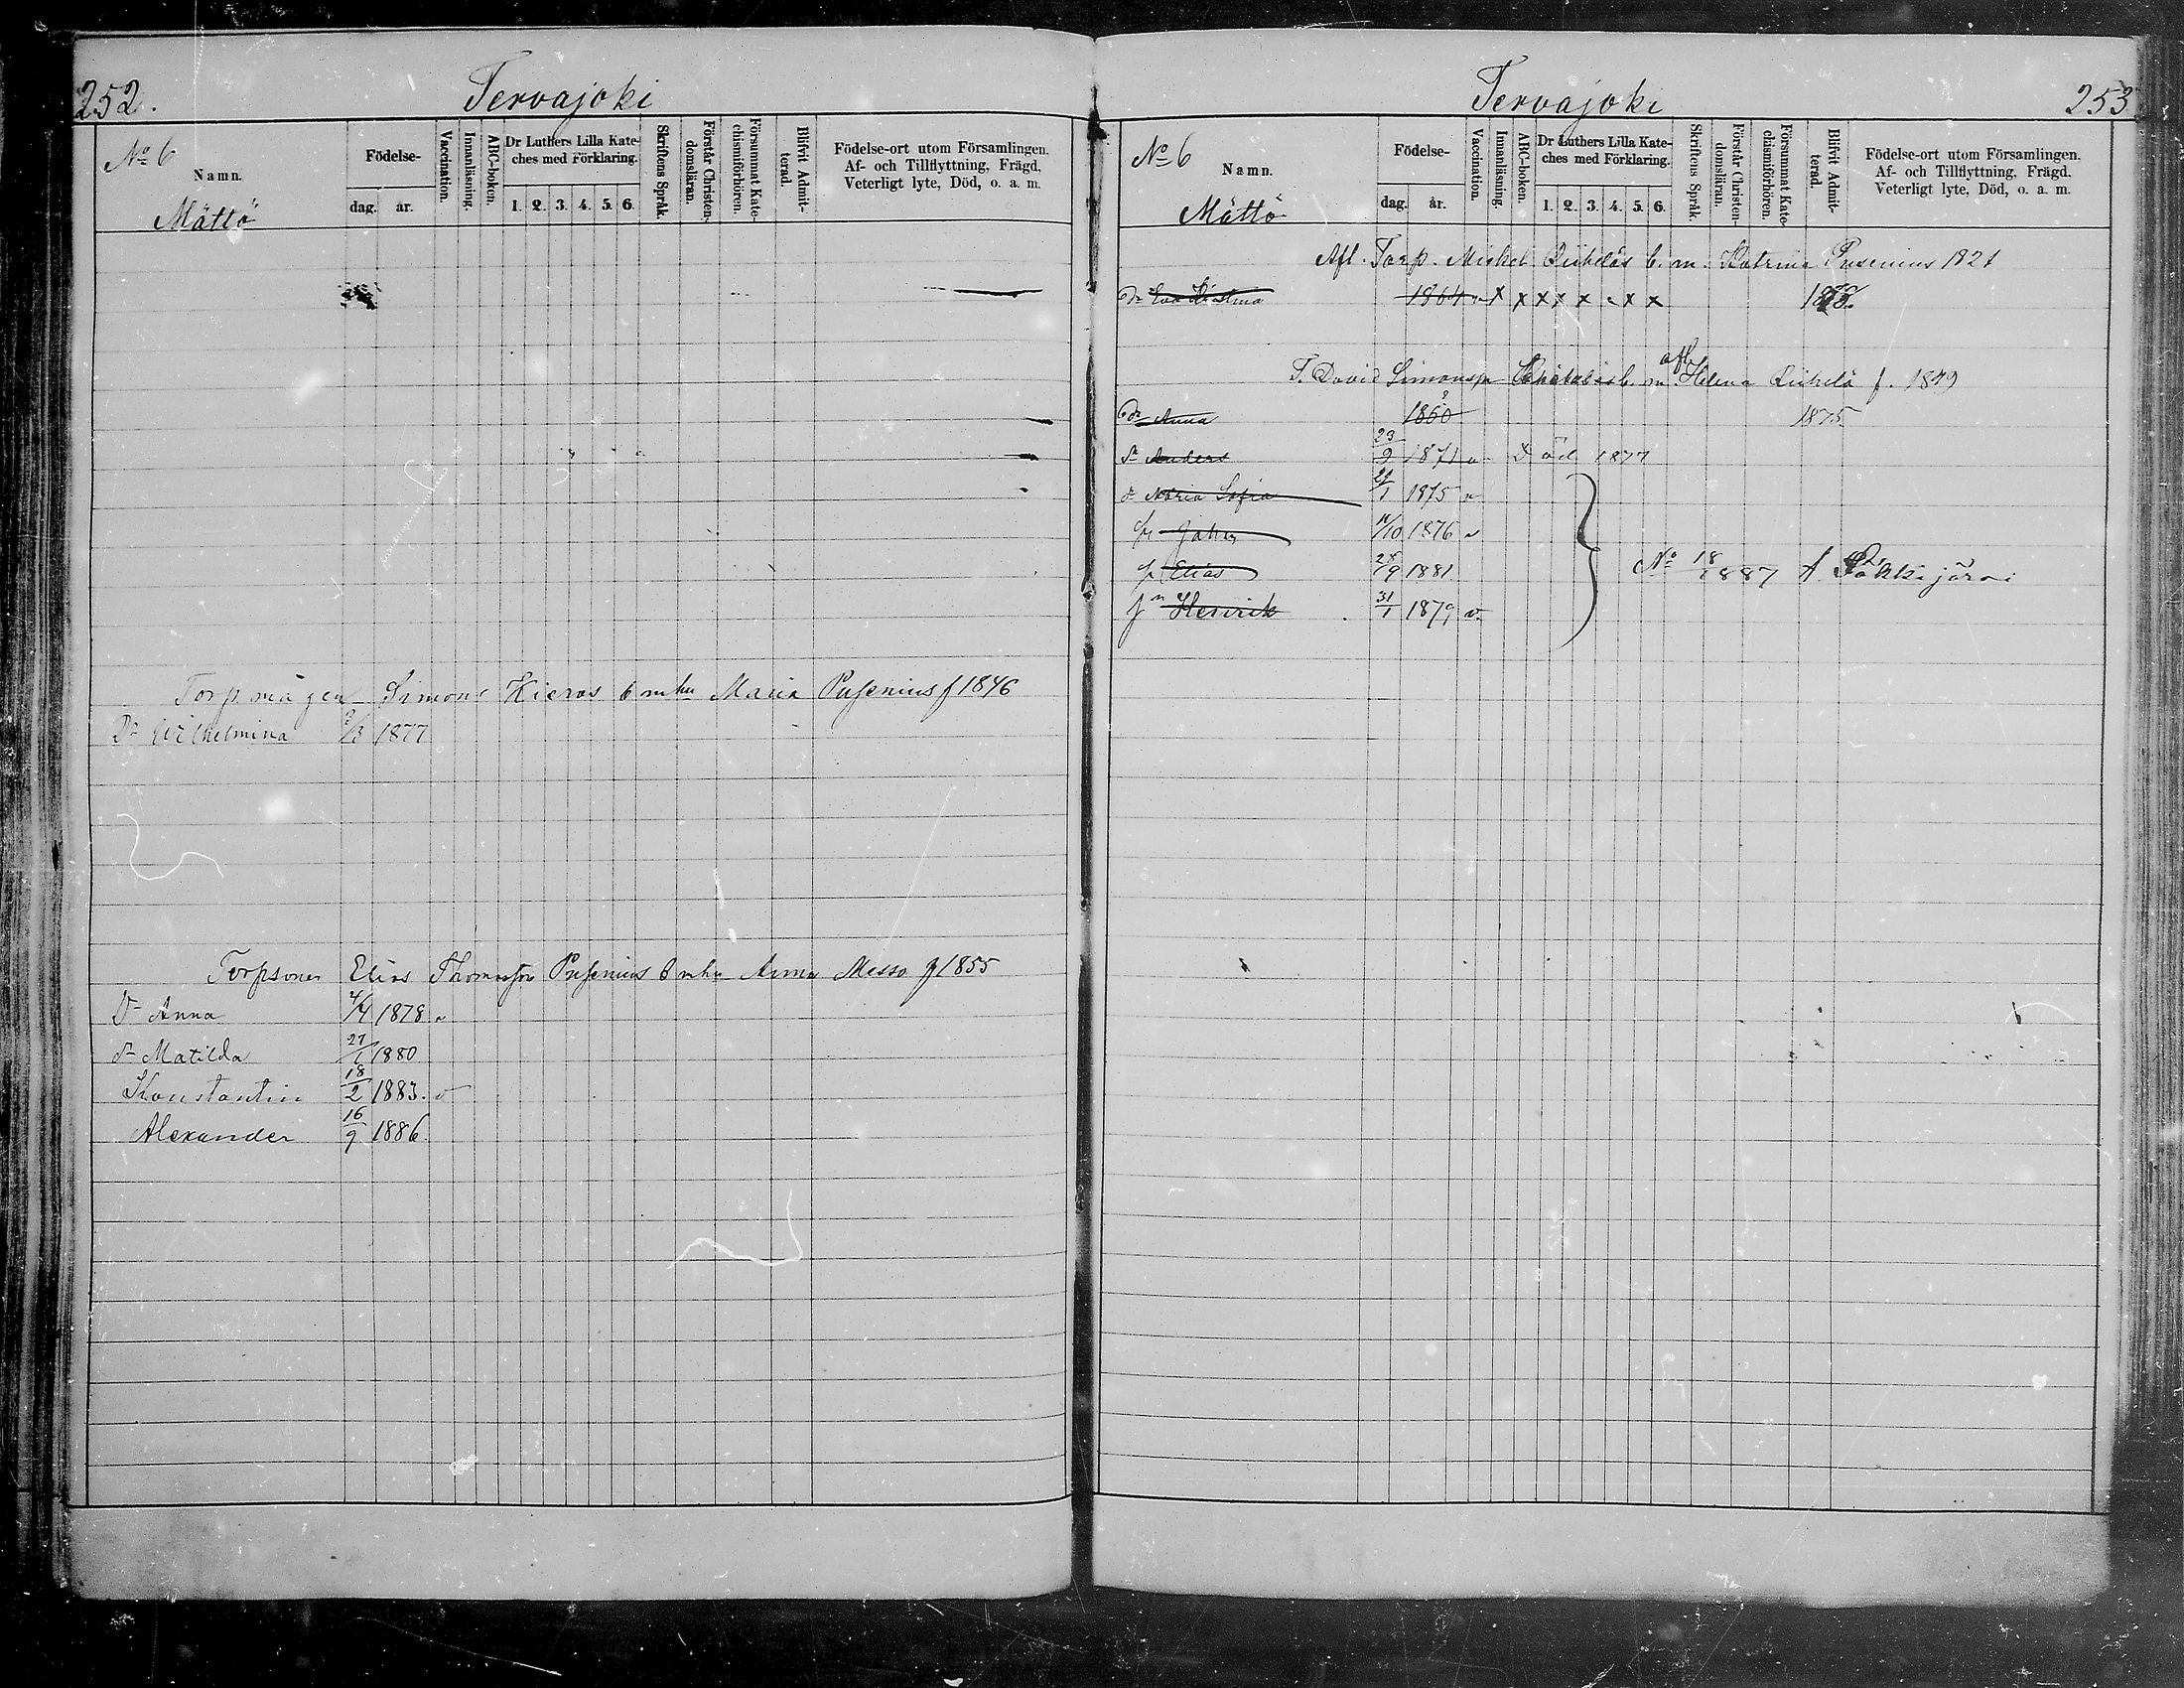 252.
Tervajoki
No 6
Namn.
Mättö
Födelse-
dag. år.
Vaccination.
Innanläsning.
ABC-boken.
Dr Luthers Lilla Kate-
ches med Förklaring.
1. 2. 3. 4. 5. 6.
Skriftens Språk.
Förstår Christen-
domsläran.
Försummat Kate-
chismiförhören.
Blifvit Admit-
terad.
Födelse-ort utom Församlingen.
Af- och Tillflyttning, Frägd,
Veterligt lyte, Död, o. a. m.
Torpmågen Simon Kieras Maria Pusenius f 1846
Dr Wilhelmina 1877
Torpsonen Elias Thomasson Pusenius Anna Messo f 1855
Dr Anna 1878
dr Matilda 27/1 1880
Konstantin 18/2 1883. v
Alexander 16/9 1886.
Tervajoki
253
No 6
Namn.
Mättö
Födelse-
dag. år.
Vaccination.
Innanläsning.
ABC-boken.
Dr Luthers Lilla Kate-
ches med Förklaring.
1. 2. 3. 4. 5. 6.
Skriftens Språk.
Förstår Christen-
domsläran.
Försummat Kate-
chismiförhören.
Blifvit Admit-
terad.
Födelse-ort utom Församlingen.
Af- och Tillflyttning, Frägd.
Veterligt lyte, Död, o. a. m.
Afl. Torp. Mickel Riiheläs e. m. Katrina Pusenius 1821
Eva Kristina 1864 x x x x x x x
afl.
T. David Simonsson Helena Riihelä f. 1849
Anna 1850 1875
Anders 23/9 1871 Död 1877
dr Maria Sofia 1875
Johan 1876
Elias 1881
No 18/1887 f Säkkijärvi
Henrik 31/1 1879 v.